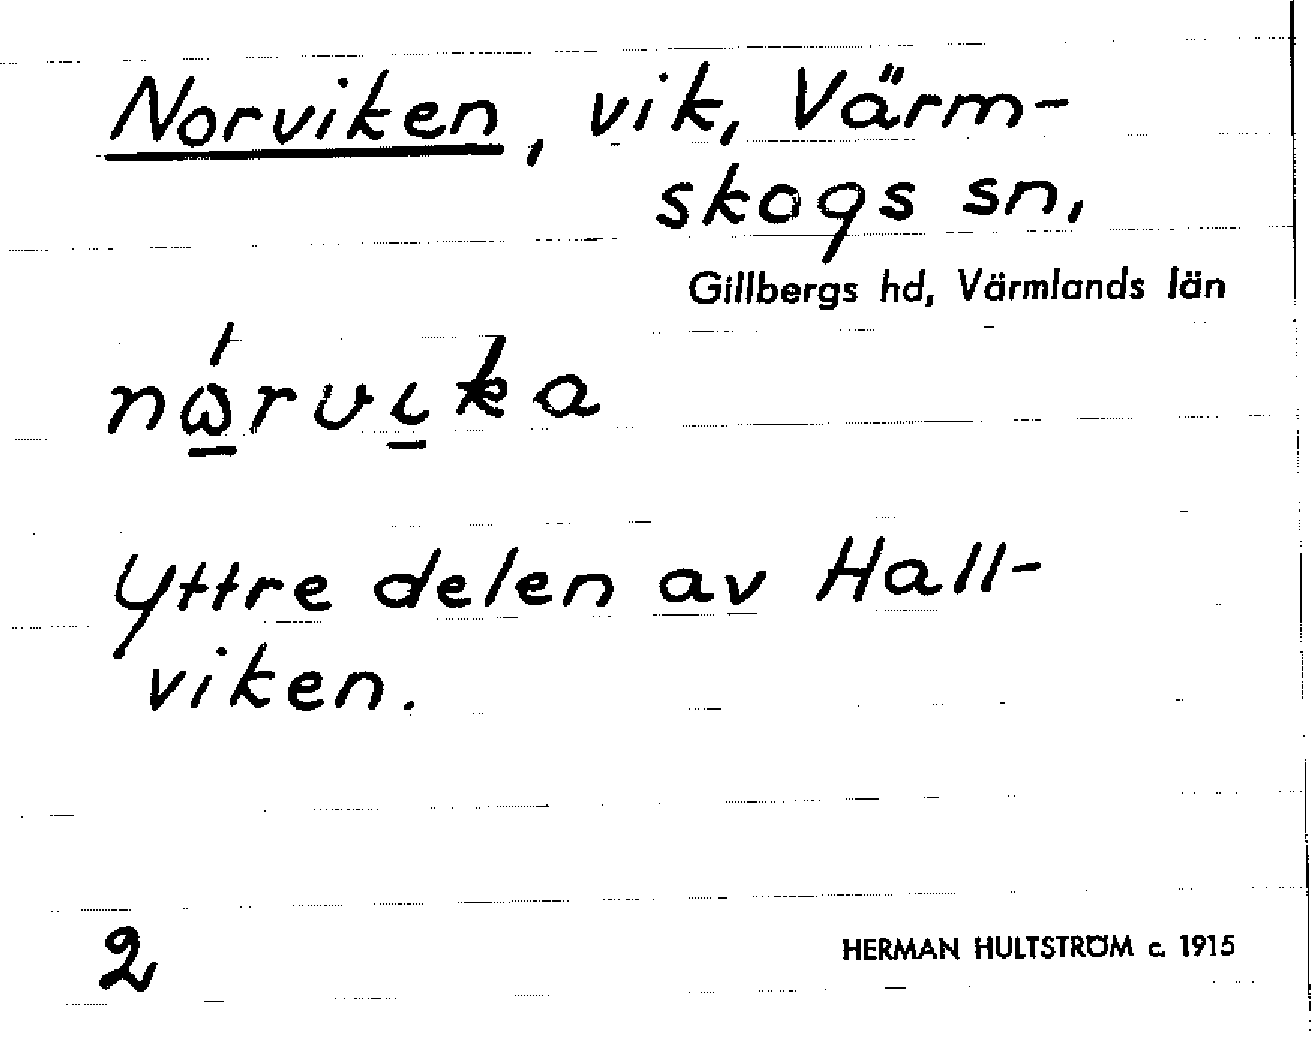 Norviken, vik, Värm-
skogs sn,
Gillbergs hd, Värmlands län
nώ̲rvi̲ka
Yttre delen av Hall-
viken.
2
HERMAN HULTSTRÖM c. 1915